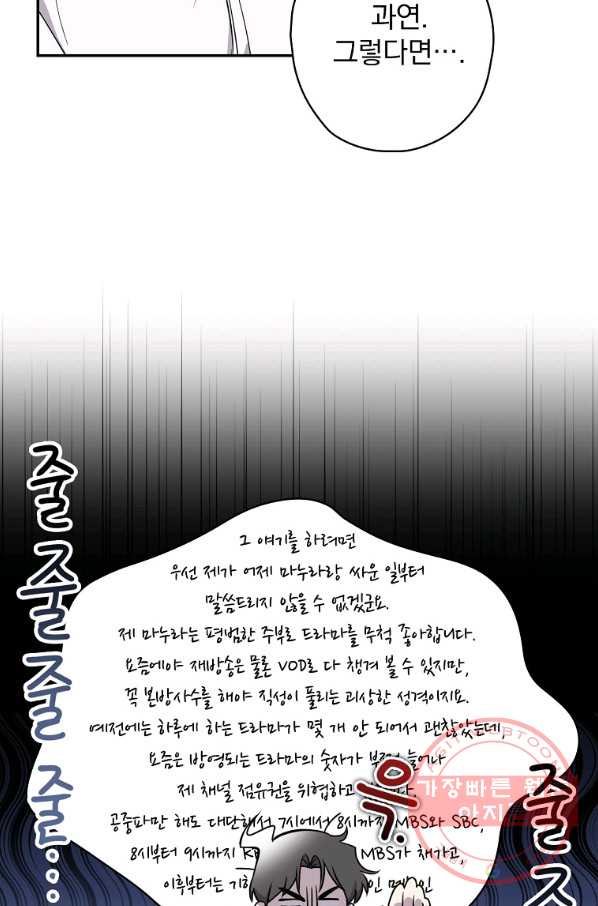 과연.
그렇다면….
줄줄줄줄…
그 얘기를 하려면
우선 제가 어제 마누라랑 싸운 일부터
말씀드리지 않을 수 없겠군요.
제 마누라는 평범한 주부로 드라마를 무척 좋아합니다.
요즘에야 재방송은 물론 VOD로 다 챙겨 볼 수 있지만,
꼭 본방사수를 해야 직성이 풀리는 괴상한 성격이지요.
예전에는 하루에 하는 드라마가 몇 개 안 되어서 괜찮았는데,
요즘은 방영되는 드라마의 숫자가 늘어나
제 채널 점유권을 위협하고
윽.
공중파만 해도 대단해서 7시에서 8시까지 MBS와 SBC,
8시부터 9시까지 MBS가 채가고,
이후부터는
줄줄줄…
가장빠른 웹